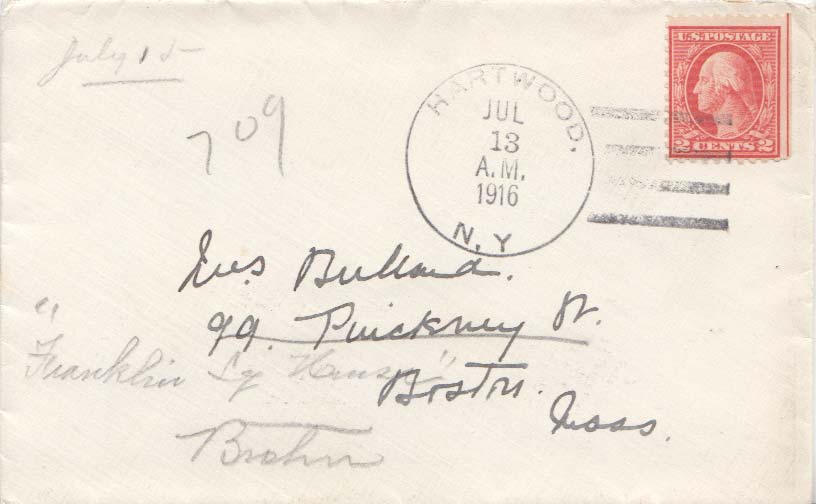 July 15
U.S. POSTAGE
2 CENTS 2
HARTWOOD.
JUL
13
A.M.
1916
N.Y
709
Bullard.
99. Pinckney St.
"Franklin Sq House"
Boston.
Mass.